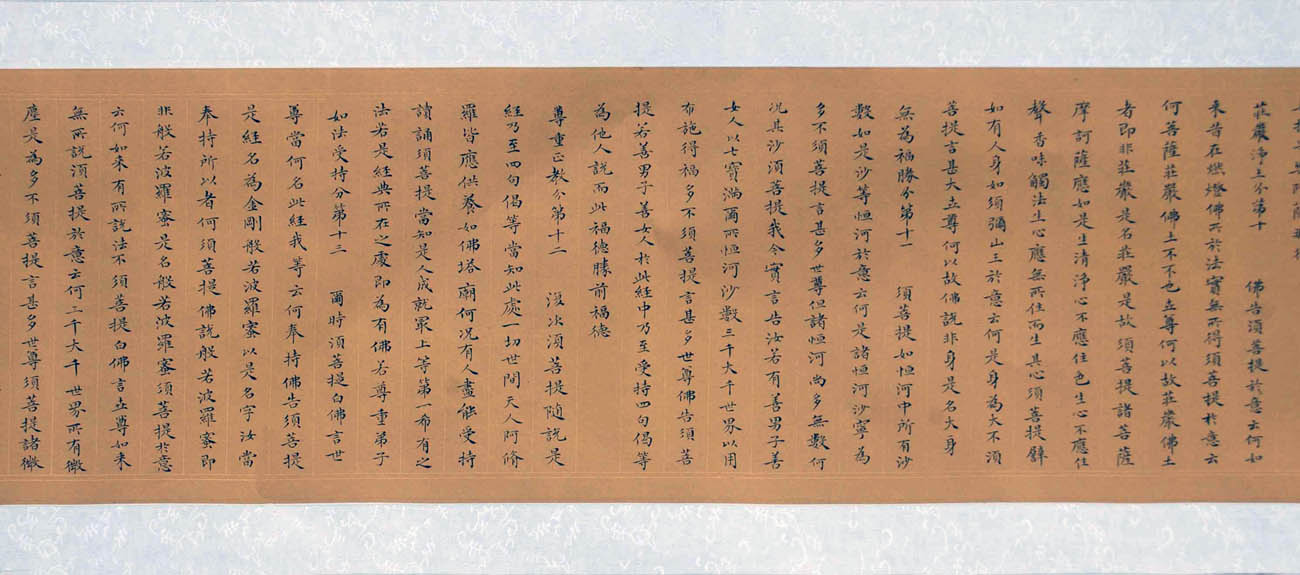 莊嚴淨土分第十　佛告須菩提於意云何如
來昔在燃燈佛所於法實無所得須菩提於意云
何菩薩莊嚴佛土不不也世尊何以故莊嚴佛土
者即非莊嚴是名莊嚴是故須菩提諸菩薩
摩訶薩應如是生清淨心不應住色生心不應住
聲香味觸法生心應無所住而生其心須菩提譬
如有人身如須彌山王於意云何是身為大不須
菩提言甚大世尊何以故佛說非身是名大身
無為福勝分第十一　須菩提如恒河中所有沙
數如是沙等恒河於意云何是諸恒河沙寧為
多不須菩提言甚多世尊但諸恒河尚多無數何
況其沙須菩提我今實言告汝若有善男子善
女人以七寶滿爾所恒河沙數三千大千世界以用
布施得福多不須菩提言甚多世尊佛告須菩
提若善男子善女人於此經中乃至受持四句偈等
為他人說而此福德勝前福德
尊重正教分第十二　復次須菩提隨說是
經乃至四句偈等當知此處一切世間天人阿修
羅皆應供養如佛塔廟何況有人盡能受持
讀誦須菩提當知是人成就最上等第一希有之
法若是經典所在之處即為有佛若尊重弟子
如法受持分第十三　爾時須菩提白佛言世
尊當何名此經我等云何奉持佛告須菩提
是經名為金剛般若波羅蜜以是名字汝當
奉持所以者何須菩提佛說般若波羅蜜即
非般若波羅蜜是名般若波羅蜜須菩提於意
云何如來有所說法不須菩提白佛言世尊如來
無所說須菩提於意云何三千大千世界所有微
塵是為多不須菩提言甚多世尊須菩提諸微